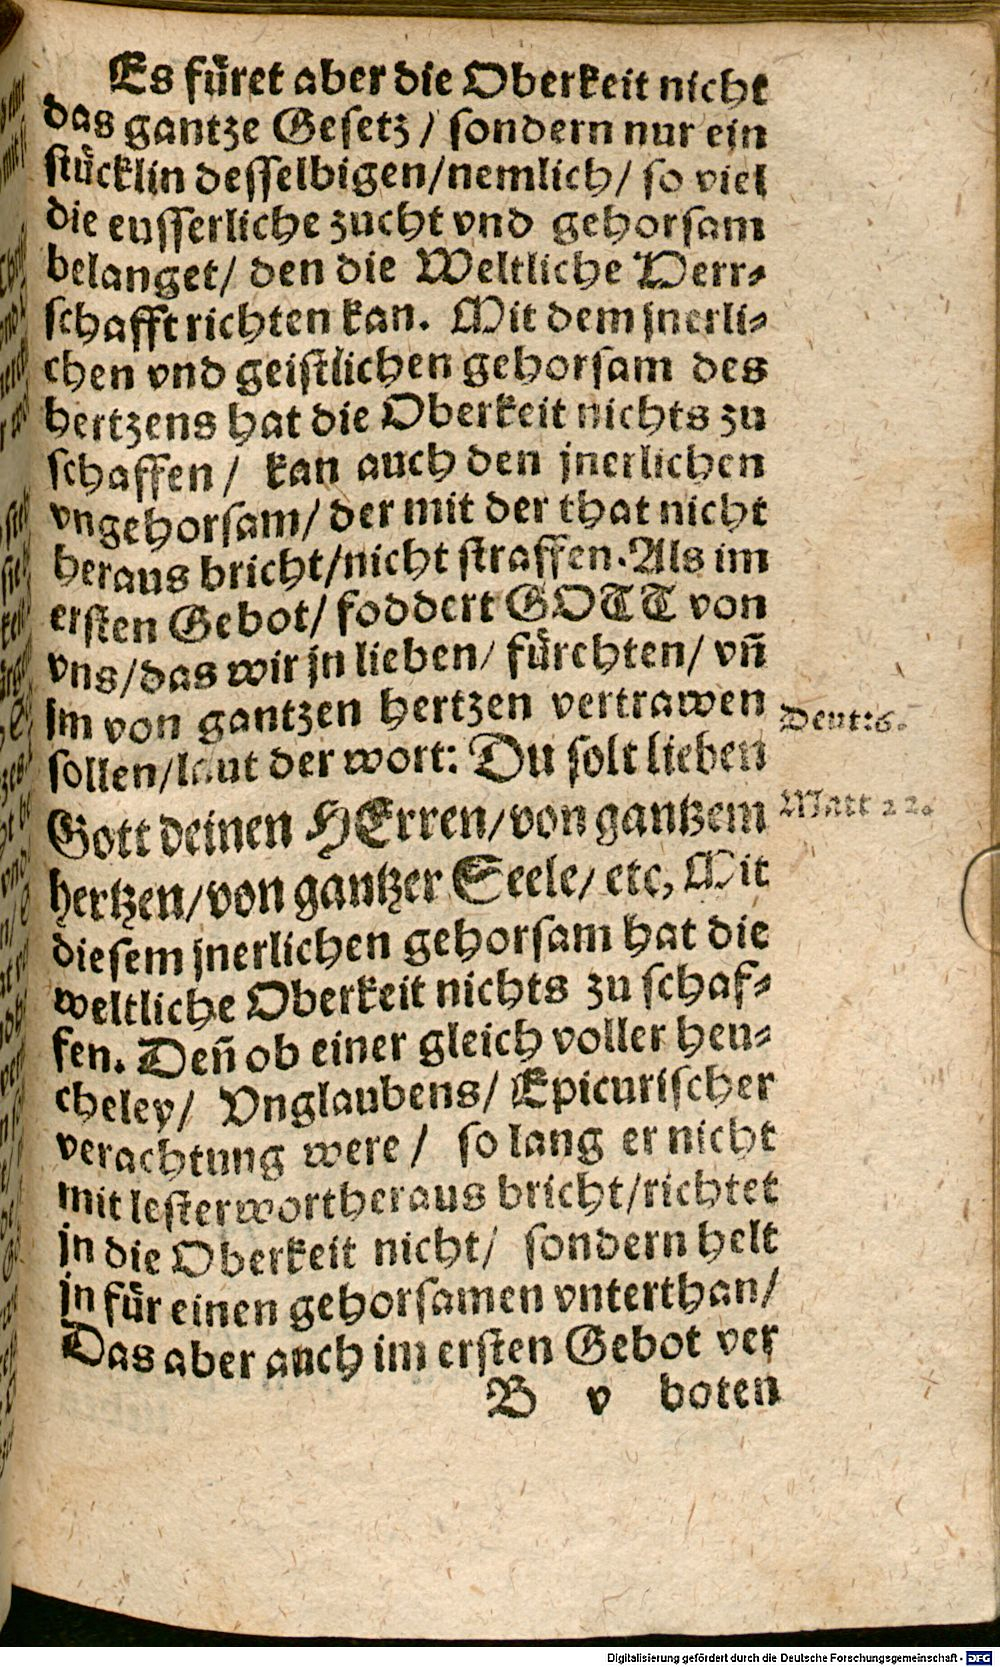 Es füret aber die Oberkeit nicht
das gantze Gesetz / sondern nur ein
stücklin desselbigen/nemlich/ so viel
die eusserliche zucht vnd gehorsam
belanget/ den die Weltliche Herr⸗
schafft richten kan. Mit dem jnerli⸗
chen vnd geistlichen gehorsam des
hertzens hat die Oberkeit nichts zu
schaffen / kan auch den jnerlichen
vngehorsam/ der mit der that nicht
heraus bricht/nicht straffen. Als im
ersten Gebot/ foddert GOTT von
vns/das wir jn lieben/ fürchten/ vñ
jm von gantzen hertzen vertrawen
sollen/laut der wort: Du solt lieben
Deut:6.
Gott deinen HErren/von gantzem
Matt 22.
hertzen/von gantzer Seele/ etc, Mit
diesem jnerlichen gehorsam hat die
weltliche Oberkeit nichts zu schaf⸗
fen. Deñ ob einer gleich voller heu⸗
cheley/ Vnglaubens/ Epicurischer
verachtung were / so lang er nicht
mit lesterwort heraus bricht/richtet
jn die Oberkeit nicht/ sondern helt
jn für einen gehorsamen vnterthan/
Das aber auch im ersten Gebot ver
B v boten
Digitalisierung gefördert durch die Deutsche Forschungsgemeinschaft - DFG